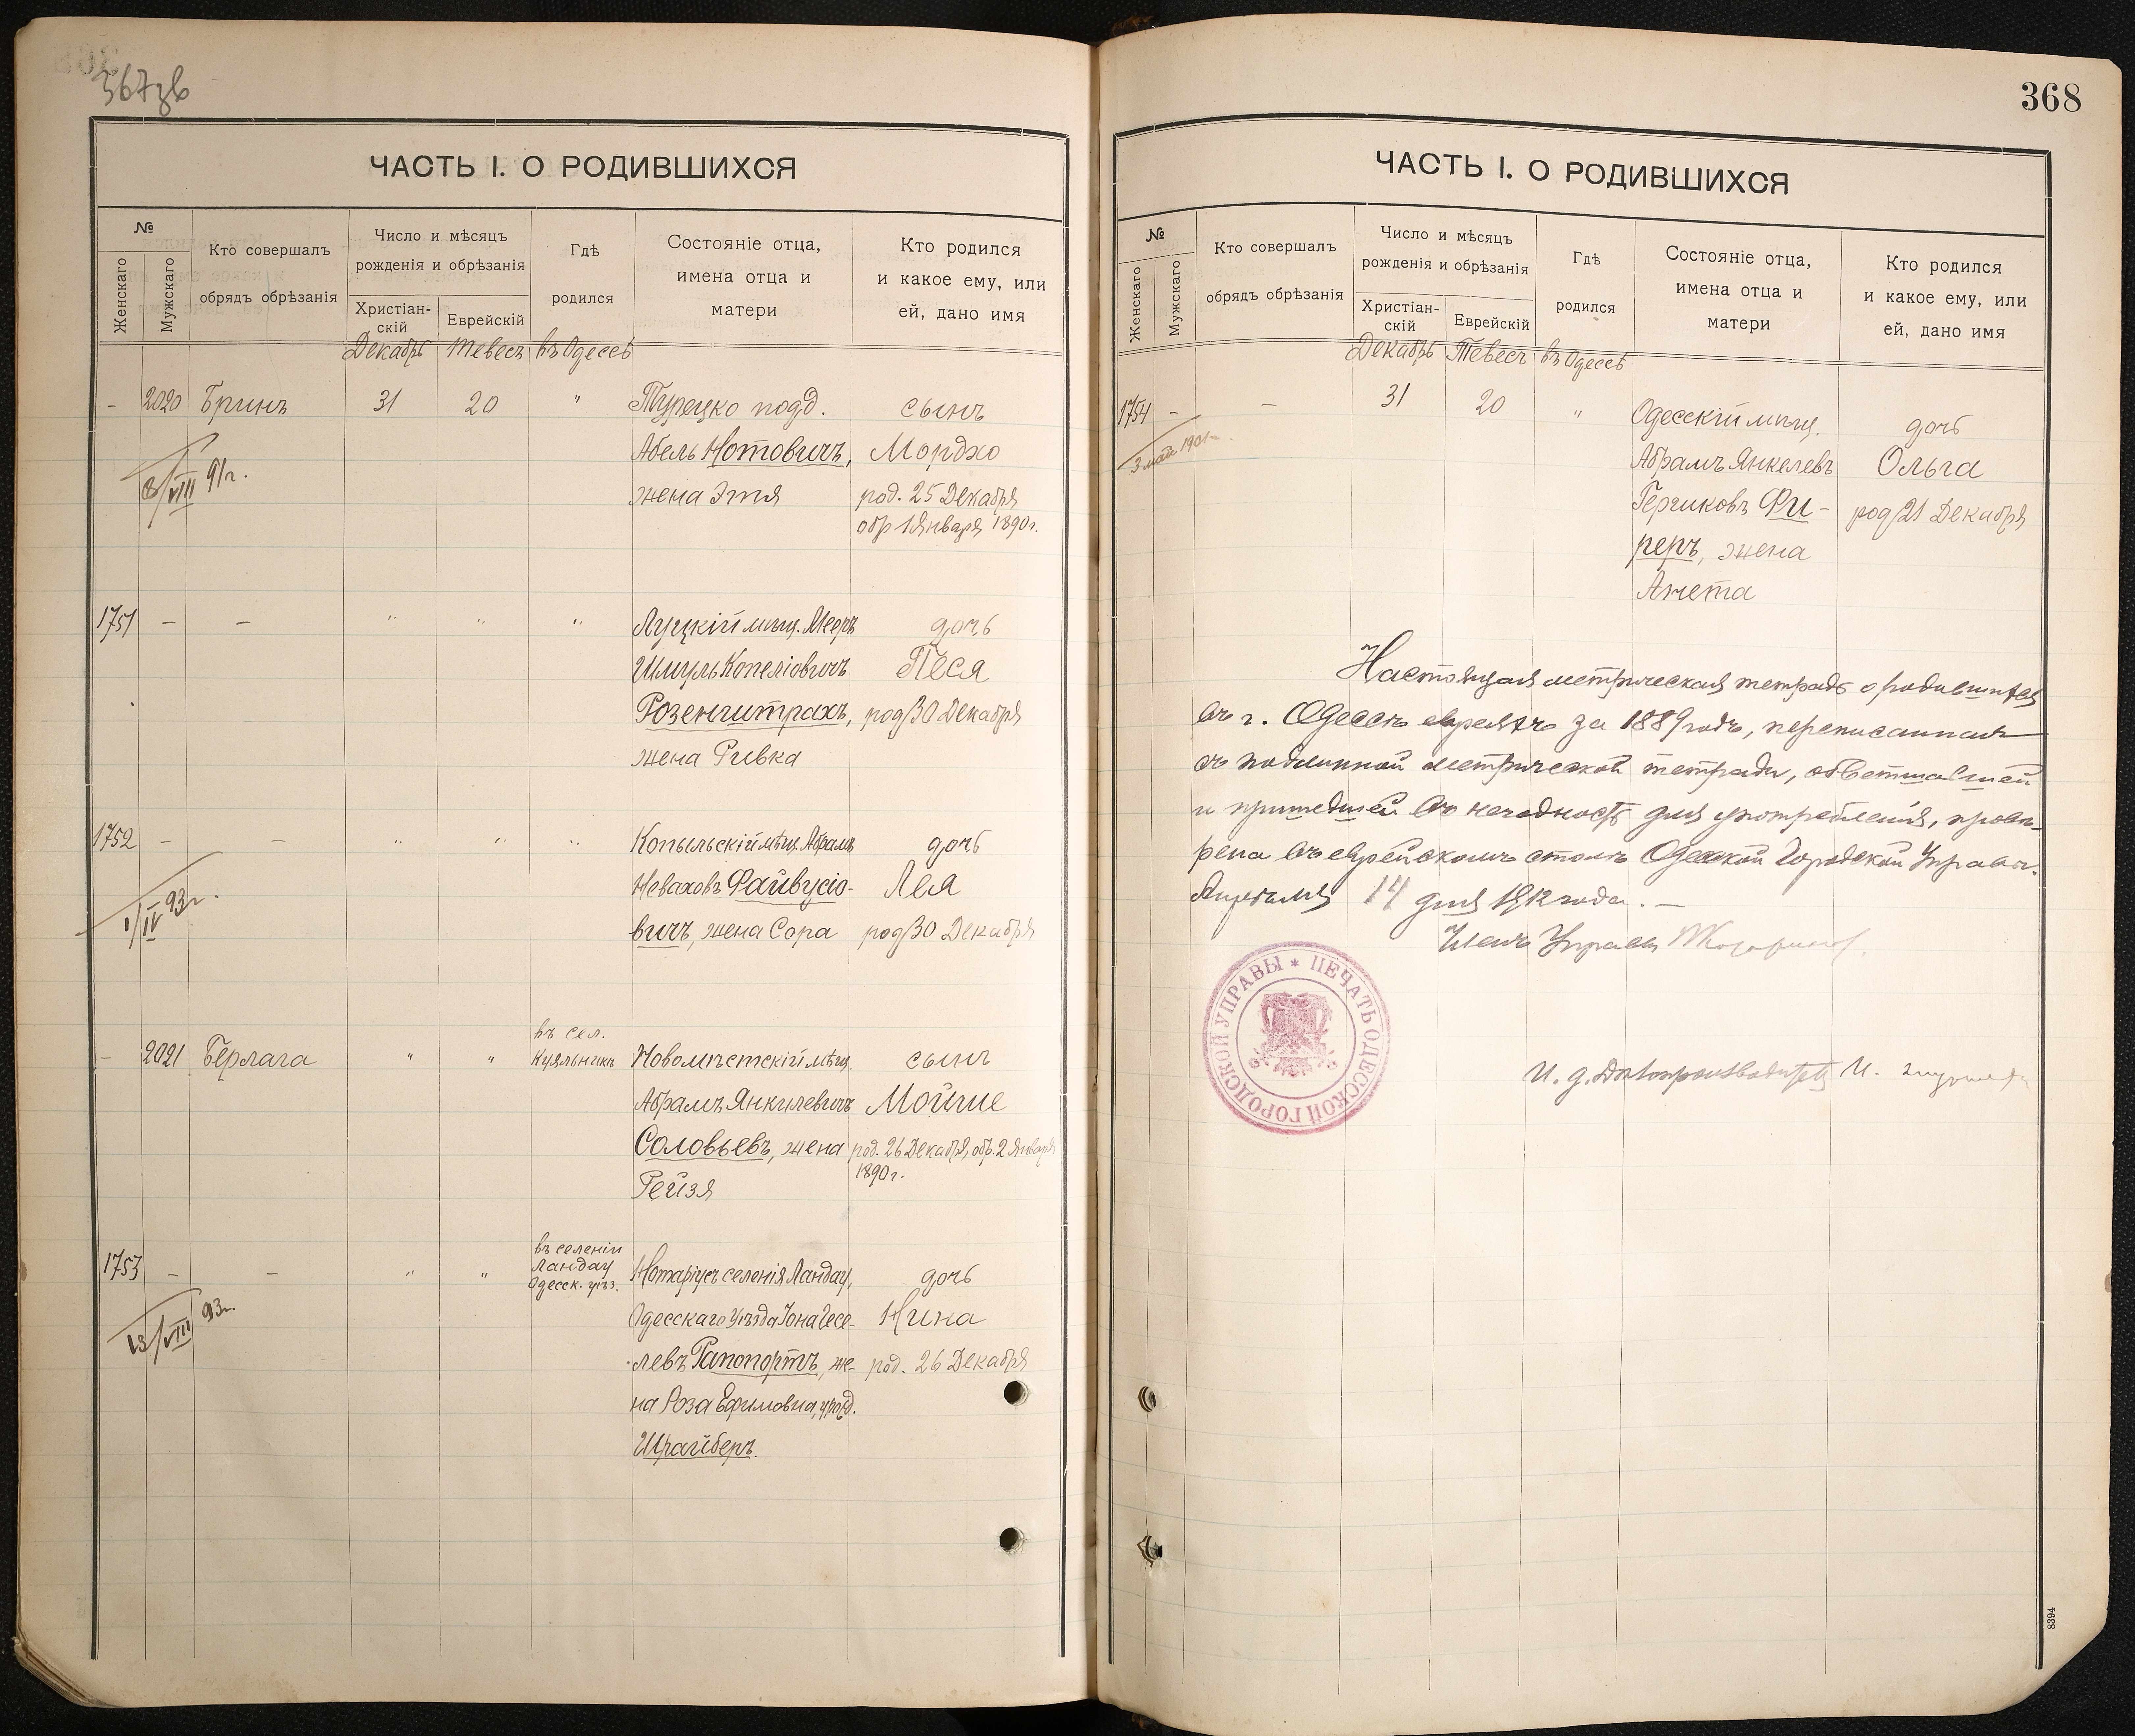 367зв
ЧАСТЬ I. О РОДИВШИХСЯ
№
Женскаго
Мужскаго
Кто совершалъ
обрядъ обрѣзанія
Число и мѣсяцъ
рожденія и обрѣзанія
Христіан-
скій
Еврейскій
Гдѣ
родился
Состояніе отца,
имена отца и
матери
Кто родился
и какое ему, или
ей, дано имя
Декабрь Тевесъ въ Одессѣ
- 2020 Бринъ 31 20 " Турецко подд. сынъ
Абель Нотовичъ, Мордхо
8/VIII 91г. жена Этя род. 25 Декабря
обр 1 Января 1890г.
1751 - - " " " Луцкій мѣщ. Мееръ дочь
Шмуль Копеліовичъ Песя
Розенштрахъ, род 30 Декабря
жена Ривка
1752 - - " " " Копыльскій мѣщ. Абрамъ дочь
1/IV 93г. Неваховъ Файвусіо- Лея
вичъ, жена Сора род 30 Декабря
въ сел.
- 2021 Берлага " " Куяльникъ Новомѣстскій мѣщ. сынъ
Абрамъ Янкилевичъ Мойше
Соловьевъ, жена род. 26 Декабря, обр. 2 Января
Рейзя 1890г.
въ селеніи
Ландау
Одесск. уѣз.
1753 - - " " Нотаріусъ селенія Ландау, дочь
13/VIII 93г. Одесскаго Уѣзда Іона Гесе- Нина
левъ Рапопортъ, же- род. 26 Декабря
на Роза Ефимовна, урожд.
Шрайберъ.
368
ЧАСТЬ I. О РОДИВШИХСЯ
№
Женскаго
Мужскаго
Кто совершалъ
обрядъ обрѣзанія
Число и мѣсяцъ
рожденія и обрѣзанія
Христіан-
скій
Еврейскій
Гдѣ
родился
Состояніе отца,
имена отца и
матери
Кто родился
и какое ему, или
ей, дано имя
Декабрь Тевесъ въ Одессѣ
1754 - - 31 20 " Одесскій мѣщ. дочь
3 мая 1901 Абрамъ Янкелевъ Ольга
Герчиковъ Фи- род 21 Декабря
реръ, жена
Анета
Настоящая метрическая тетрадь о родившихся
въ г. Одессѣ евреяхъ за 1889 годъ, переписанная
съ подлинной метрической тетради, обветшавшей
и пришедшей въ негодность для употребленія, провѣ-
рена въ еврейскомъ столѣ Одесской Городской Управы.
14 дня 1912 года. -
Членъ Управы
ПЕЧАТЬ ОДЕССКОЙ ГОРОДСКОЙ УПРАВЫ *
И. д. Дѣлопроизводителя И.
8394